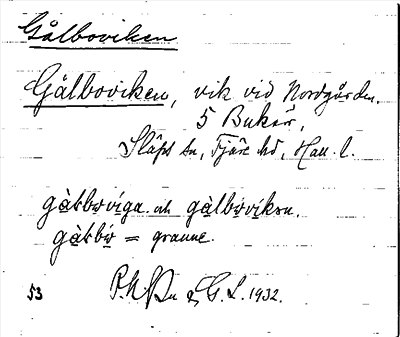 Gålboviken
Gålboviken, vik vid Nordgården,
5 Bukär,
Släps sn, Fjäre hd, Hall. l.
gàłbovíga och gàlbovíken.
gàłbó = granne.
53 P.N.Pn & G. L. 1932.